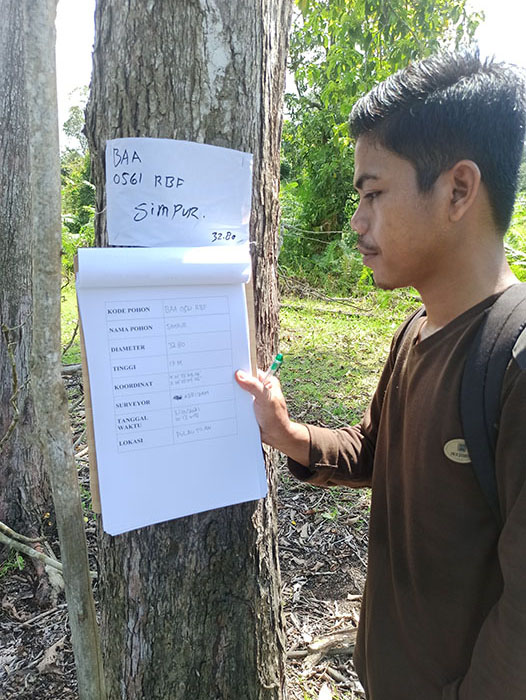 BAA
0561 RBF
SIMPUR.
32.80
KODE POHON BAA 0561 RBF
NAMA POHON SIMPUR
DIAMETER 32.80
TINGGI 17 M
KOORDINAT
SURVEYOR
TANGGAL
WAKTU
LOKASI